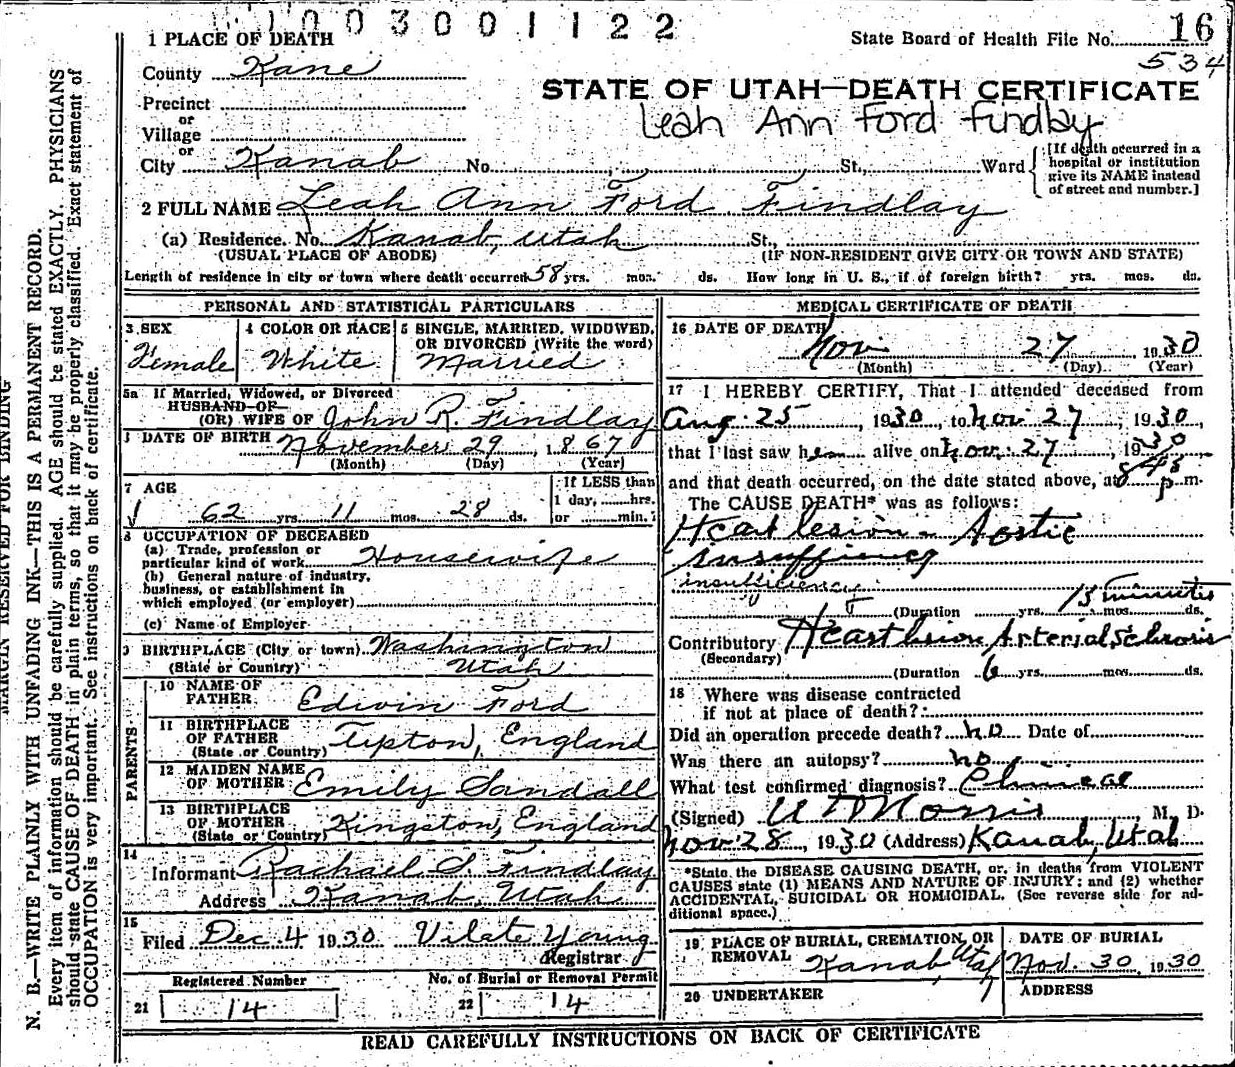 1003001122
16
1 PLACE OF DEATH
State Board of Health File No.
534
County Kane
STATE OF UTAH—DEATH CERTIFICATE
Precinct
or
Leah Ann Ford Findlay
Village
or
City Kanab No. St., Ward
[If death occurred in a
hospital or institution
give its NAME instead
of street and number.]
2 FULL NAME Leah Ann Ford Findlay
(a) Residence. No. Kanab, Utah St.,
(USUAL PLACE OF ABODE) (IF NON-RESIDENT GIVE CITY OR TOWN AND STATE)
Length of residence in city or town where death occurred 58 yrs. mos. ds. How long in U. S., if of foreign birth? yrs. mos. ds.
PERSONAL AND STATISTICAL PARTICULARS
3 SEX 4 COLOR OR RACE 5 SINGLE, MARRIED, WIDOWED,
OR DIVORCED (Write the word)
Female White Married
5a If Married, Widowed, or Divorced
HUSBAND OF
(OR) WIFE OF John R. Findlay
DATE OF BIRTH November 29, 1867
(Month) (Day) (Year)
7 AGE
If LESS than
1 day, hrs.
62 yrs. 11 mos. 28 ds. or min.
8 OCCUPATION OF DECEASED
(a) Trade, profession or
particular kind of work Housewife
(b) General nature of industry,
business, or establishment in
which employed (or employer)
(c) Name of Employer
9 BIRTHPLACE (City or town) Washington
(State or Country) Utah
PARENTS
10 NAME OF
FATHER Edwin Ford
11 BIRTHPLACE
OF FATHER
(State or Country) Tipton, England
12 MAIDEN NAME
OF MOTHER Emily Sandall
13 BIRTHPLACE
OF MOTHER
(State or Country) Kingston, England
14
Informant Rachael S. Findlay
Address Kanab, Utah
15
Filed Dec. 4 1930 Vilate Young
Registrar
Registered Number No. of Burial or Removal Permit
21 14 22 14
MEDICAL CERTIFICATE OF DEATH
16 DATE OF DEATH
Nov 27, 1930
(Month) (Day) (Year)
17 I HEREBY CERTIFY, That I attended deceased from
Aug. 25, 1930, to Nov 27, 1930,
that I last saw her alive on Nov. 27, 1930
and that death occurred, on the date stated above, at 845 p m.
The CAUSE DEATH* was as follows:
Heart lesion Aortic
insufficiency
insufficiency
(Duration yrs. mos. ds. 15 minutes
Contributory Heart lesion, Arterial Schrosis
(Secondary)
(Duration 6 yrs. mos. ds.
18 Where was disease contracted
if not at place of death?
Did an operation precede death? no Date of
Was there an autopsy? no
What test confirmed diagnosis? Clinical
(Signed) Norris, M. D.
Nov 28, 1930 (Address) Kanab, Utah
*State the DISEASE CAUSING DEATH, or, in deaths from VIOLENT
CAUSES state (1) MEANS AND NATURE OF INJURY; and (2) whether
ACCIDENTAL, SUICIDAL OR HOMICIDAL. (See reverse side for ad-
ditional space.)
19 PLACE OF BURIAL, CREMATION, OR
REMOVAL Kanab, Utah
DATE OF BURIAL
Nov. 30, 1930
20 UNDERTAKER ADDRESS
READ CAREFULLY INSTRUCTIONS ON BACK OF CERTIFICATE
MARGIN RESERVED FOR BINDING
N. B.—WRITE PLAINLY WITH UNFADING INK—THIS IS A PERMANENT RECORD.
Every item of information should be carefully supplied. AGE should be stated EXACTLY. PHYSICIANS
should state CAUSE OF DEATH in plain terms, so that it may be properly classified. Exact statement of
OCCUPATION is very important. See instructions on back of certificate.